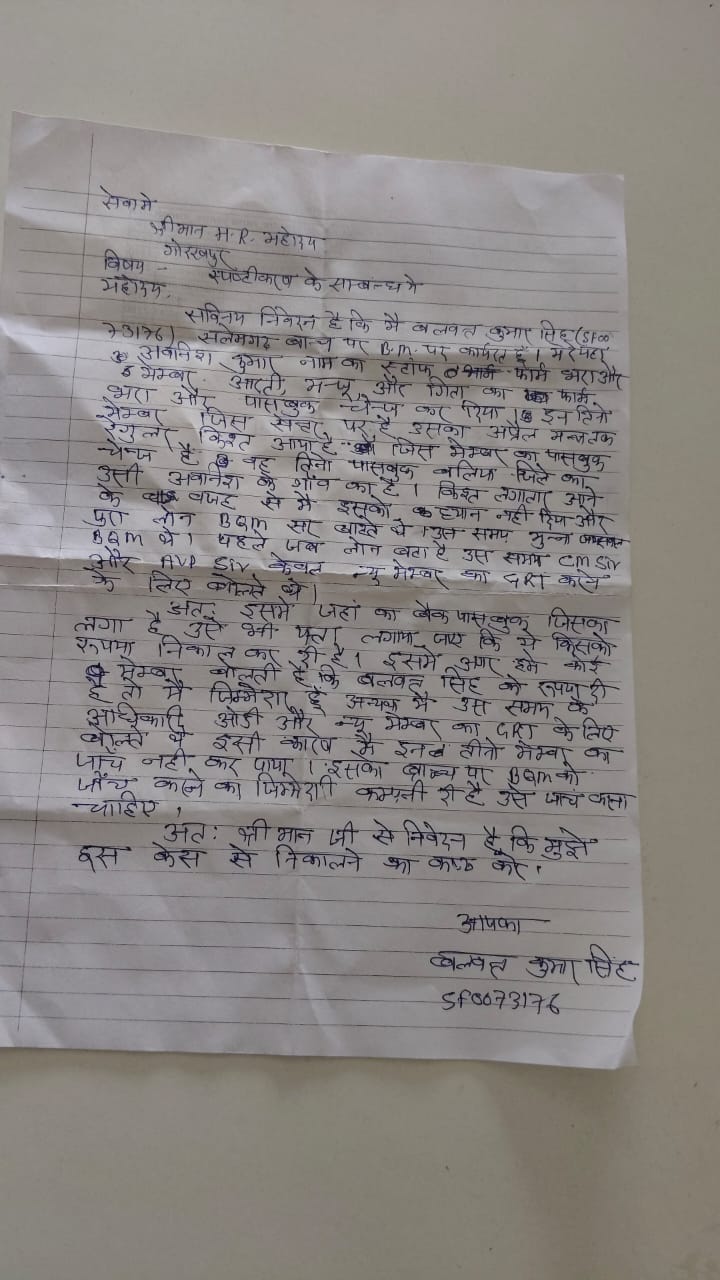 सेवामे
श्रीमान H.R. महोदय
गोरखपुर
विषय - स्पष्टीकरण के सम्बन्ध मे
महोदय,
सविनय निवेदन है कि मै बलवन्त कुमार सिंह (Sf00
73176) सलेमगढ ब्रान्च पर B.M. पर कार्यरत हूँ। मेरे यहा
अवनिश कुमार नाम का स्टाफ फार्म भरा और
मेम्बर आरती, मन्जू और गिता का फार्म
भरा और पासबुक चेन्ज कर दिया। इन तिनो
मेम्बर जिस सेन्टर पर है उसका अप्रैल मन्थ तक
रेगुलर किश्त आया है जिस मेम्बर का पासबुक
चेन्ज है वह तिनो पासबुक बलिया जिले का
उसी अवनिश के गाँव का है। किश्त लगातार आने
के वजह से मै इसको ध्यान नही दिया और
पुरा लोन BQM सर करते थे। उस समय मुन्ना
BQM थे। पहले जब लोन बटा है उस समय CM Siv
और AVP Siv केवल न्यू मेम्बर का GRT करने
के लिए बोलते थे।
अतः इसमे जहां का बैंक पासबुक जिसका
लगा है उसे भी पता लगाया जाए कि से किसको
रूपया निकाल कर दी है। इसमे अगर हमे कोई
मेम्बर बोलती है कि बलवन्त सिंह को रूपया दी
है तो मै जिम्मेदार हूँ अन्यथा मै उस समय के
अधिकारि ओडी और न्यू मेम्बर का GRT के लिए
बोलते थे इसी कारण मै इन तीनो मेम्बर का
जाच नही कर पाया। इसका ब्रान्च पर BQM को
जाँच करने का जिम्मेदारी कम्पनी दी है उसे जाच करना
चाहिए।
अतः श्री मान जी से निवेदन है कि मुझे
इस केस से निकालने का कष्ट करे।
आपका
बलवन्त कुमार सिंह
Sf0073176